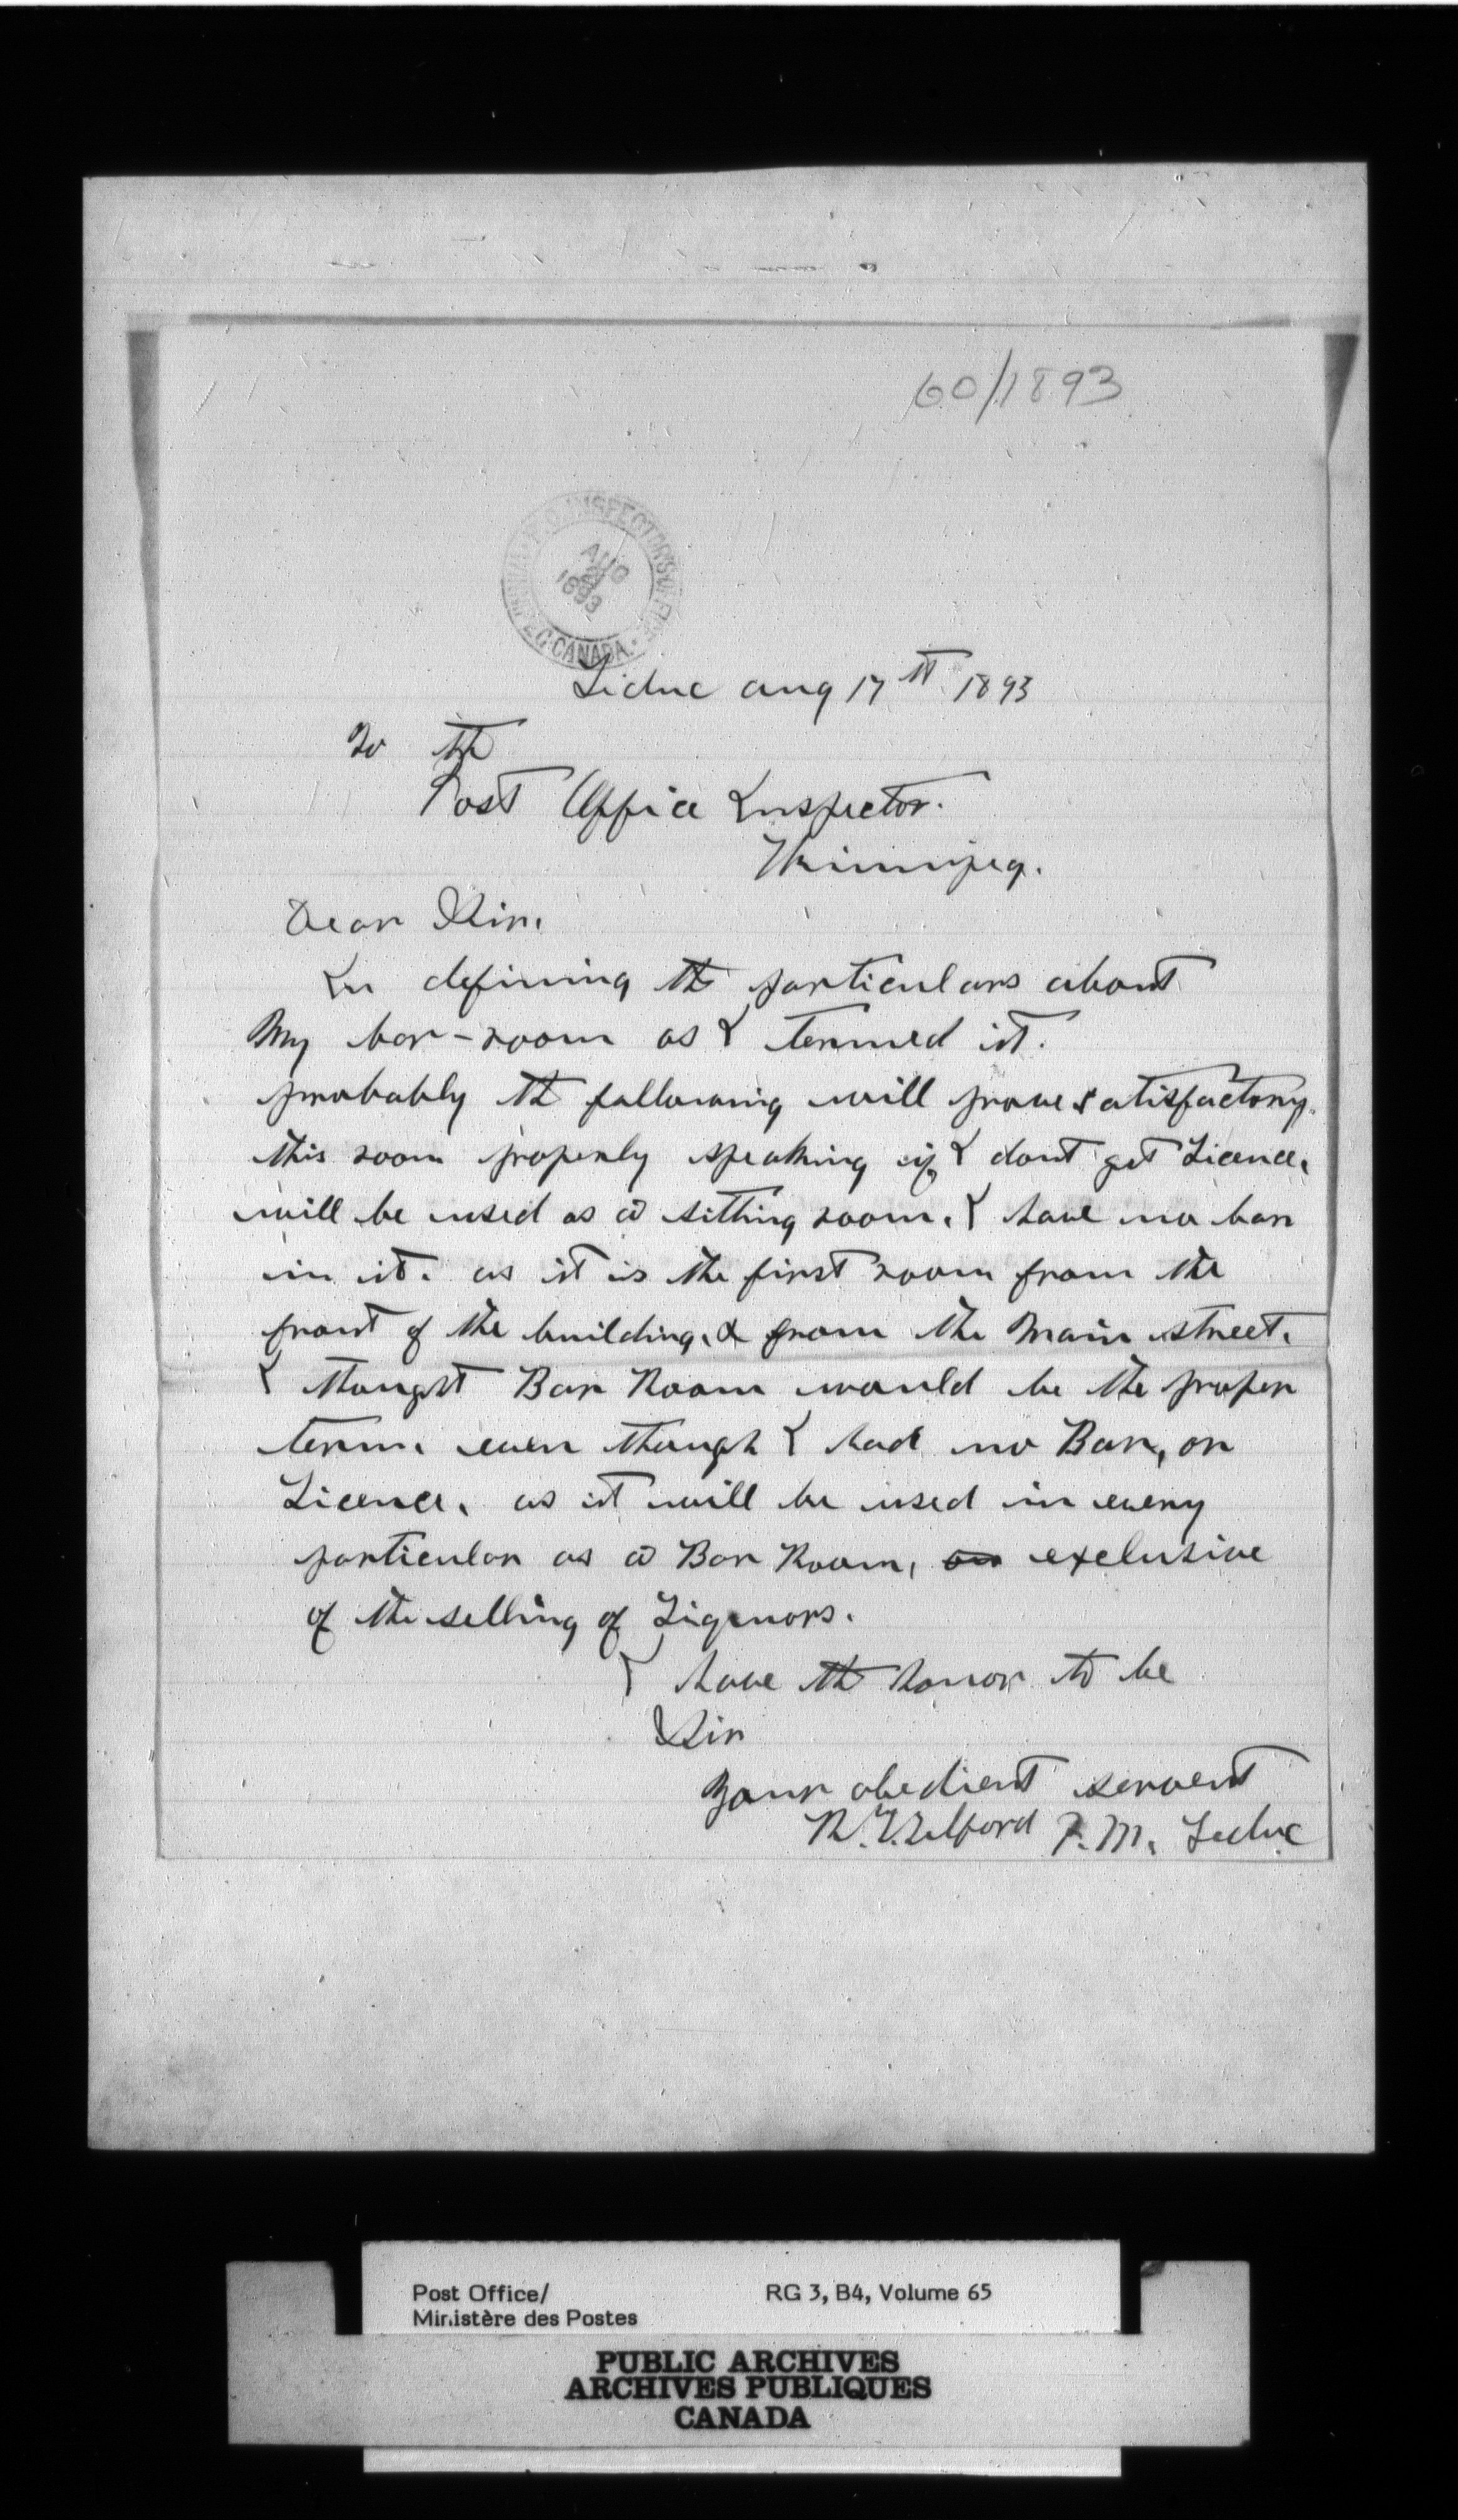 60/1893
P.O. INSPECTOR'S OFFICE
AUG
1893
CANADA
Leduc aug 17th 1893
To the
Post Office Inspector.
Winnipeg.
Dear Sir.
In defining the particulars about
My bar-room as I termed it.
probably the following will prove satisfactory.
this room properly speaking if I dont get Licence.
will be used as a sitting room. I have no bar
in it. as it is the first room from the
front of the building. & from the Main street.
I thought Bar Room would be the proper
term. even though I had no Bar, or
Licence. as it will be used in every
particular as a Bar Room, exclusive
of the selling of Liqquors.
I have the honor to be
Sir
Your obedient servent
R.T. Telford P.M. Leduc
Post Office/
Ministère des Postes
RG 3, B4, Volume 65
PUBLIC ARCHIVES
ARCHIVES PUBLIQUES
CANADA